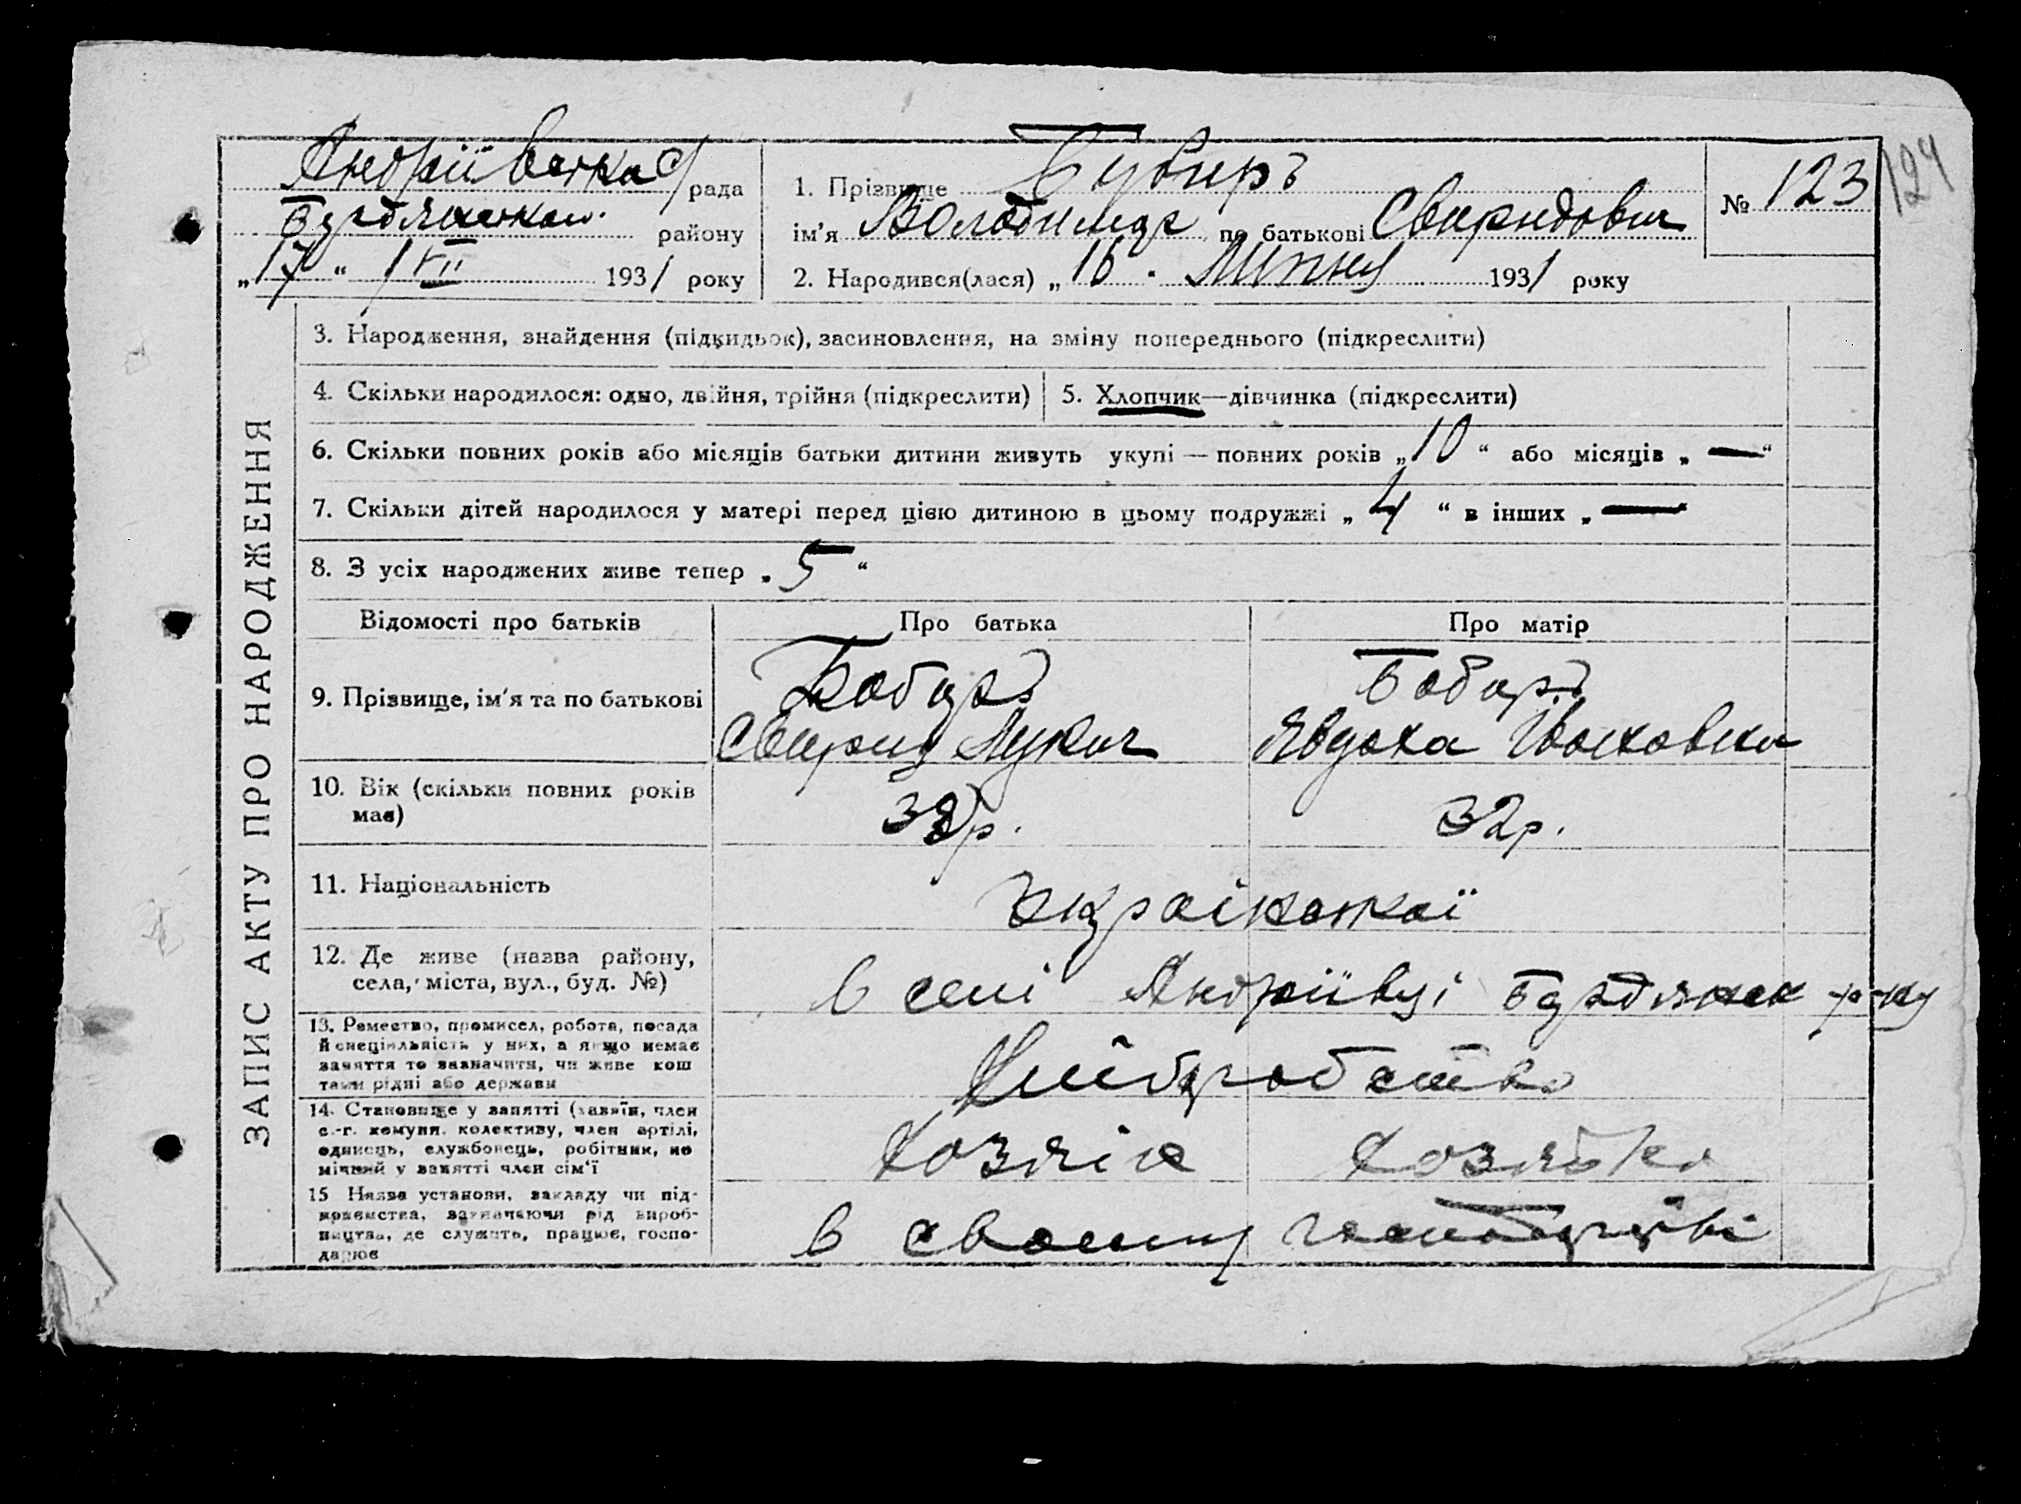 Андріївська с/рада
Бердянськ. району
„17“ VII 1931 року
1. Прізвище
ім'я Володимир по батькові Свиридович
2. Народився(лася) „16. Липня 1931 року
№ 123
124
ЗАПИС АКТУ ПРО НАРОДЖЕННЯ
3. Народження, знайдення (підкидьок), засиновлення, на зміну попереднього (підкреслити)
4. Скільки народилося: одно, двійня, трійня (підкреслити)
5. Хлопчик—дівчинка (підкреслити)
6. Скільки повних років або місяців батьки дитини живуть укупі — повних років „10“ або місяців „—“
7. Скільки дітей народилося у матері перед цією дитиною в цьому подружжі „4“ в інших „—“
8. З усіх народжених живе тепер „5“
Відомості про батьків
Про батька
Про матір
9. Прізвище, ім'я та по батькові
Бобирь
Свирид Лукич
Бобирь
Явдоха
10. Вік (скільки повних років
має)
р.
32р.
11. Національність
української
12. Де живе (назва району,
села, міста, вул., буд. №)
в селі Андріївці Бердянськ р-ну
13. Ремество, промисел, робота, посада
й спеціяльність у них, а якщо немає
заняття то зазначити, чи живе кош
тами рідні або держави
Хліборобство
14. Становище у занятті (хазяїн, член
с.-г. комуни, колективу, член артілі,
одинець, службовець, робітник, по
мічний у занятті член сім'ї
хозяін
хозяйка
15 Назва установи, закладу чи під-
приємства, зазначаючи рід вироб-
ництва, де служить, працює, госпо-
дарює
в своему господарстві